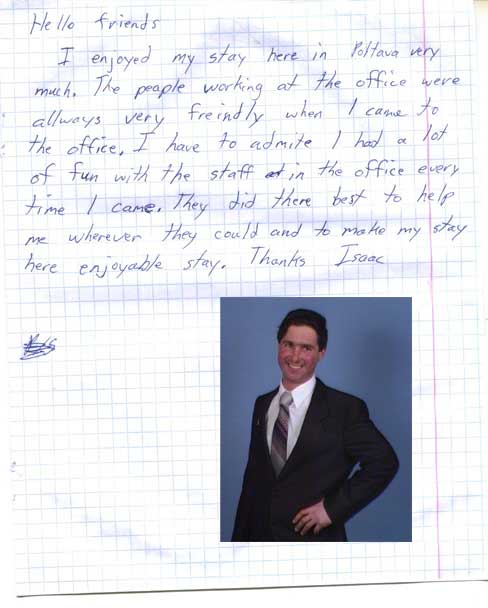 Hello friends
I enjoyed my stay here in Poltava very
much. The people working at the office were
allways very freindly when I came to
the office. I have to admite I had a lot
of fun with the staff in the office every
time I came. They did there best to help
me wherever they could and to make my stay
here enjoyable stay. Thanks Isaac